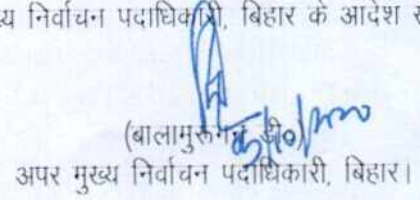 निर्वाचन पदाधिकारी, बिहार के आदेश
(बालामुरूगन डी०)
अपर मुख्य निर्वाचन पदाधिकारी, बिहार।